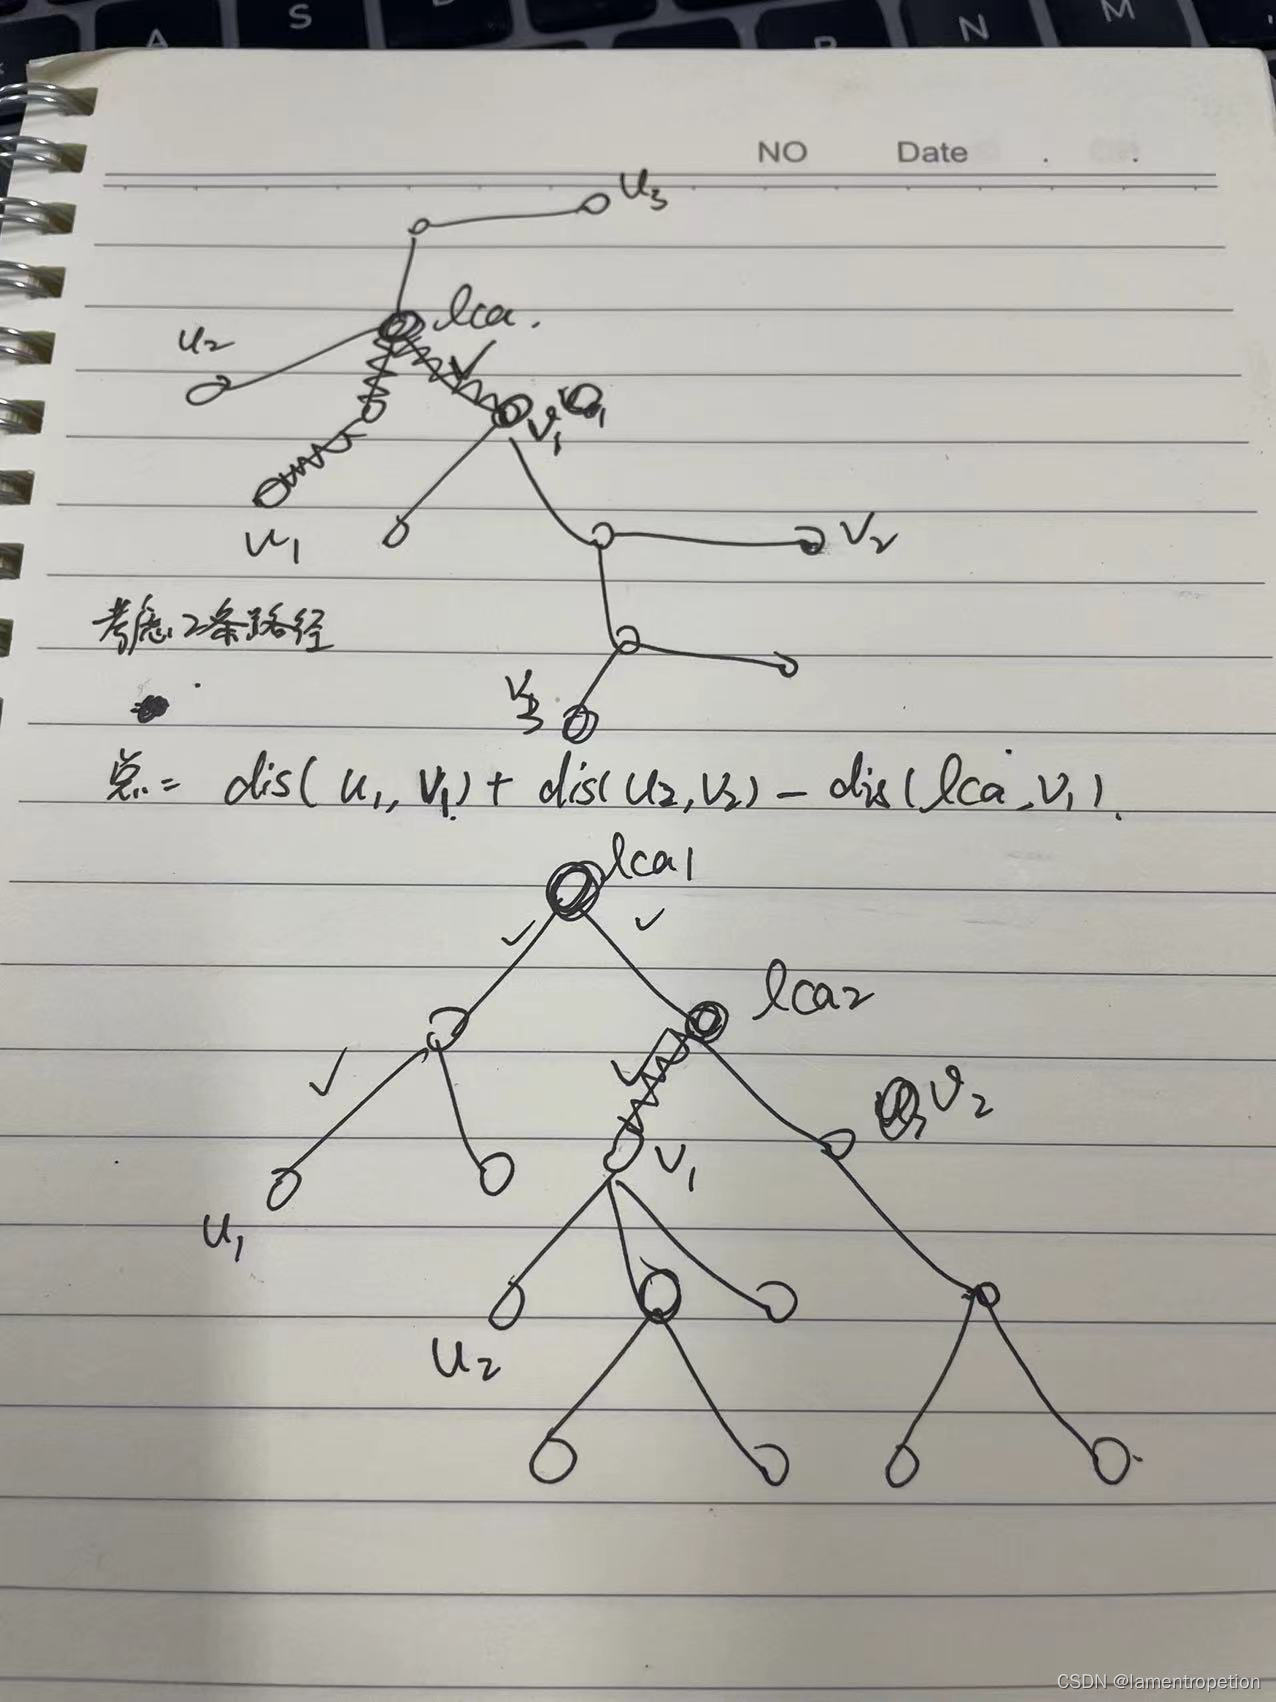 A S
N M
NO Date
u3
lca.
u2
v1
u1
v2
考虑2条路径
v3
总= dis(u1,v1)+dis(u2,v2)-dis(lca,v1).
lca1
lca2
v2
v1
u1
u2
CSDN @lamentropetion